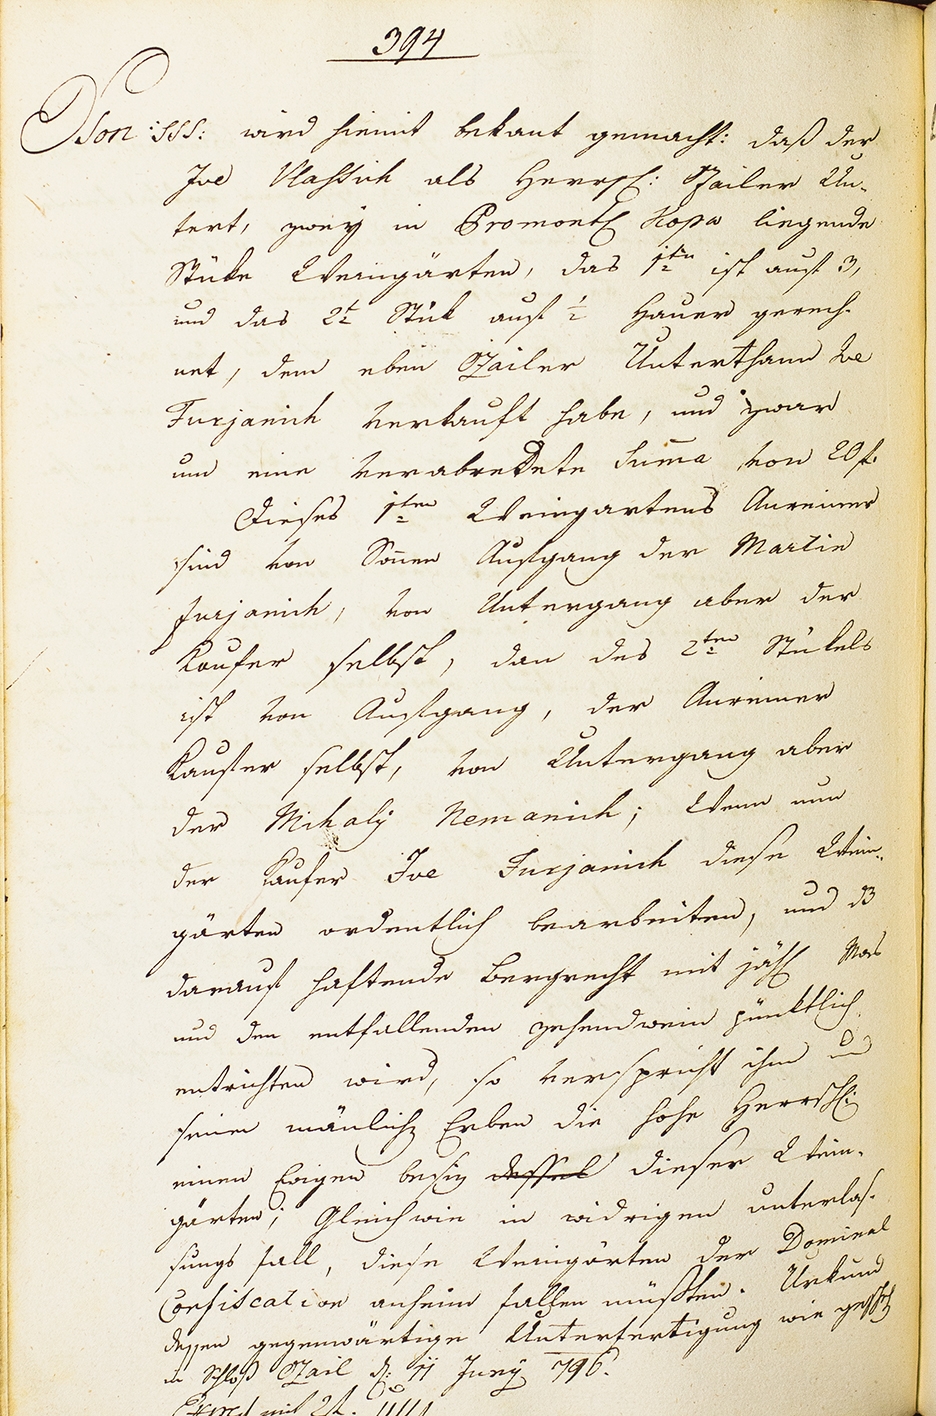 394
Von :SSS: wird hiemit bekant gemacht: daß der
Ive Vlassich als Herrsch: Ozailer Un-
tert, zwey in Promont Kopa liegende
Stüke Weingärten, das 1te ist auf 3,
und das 2t Stük auf ½ Hauer gerech-
net, dem eben Ozailer Unterthann Ive
Furjanich verkauft habe, und zwar
um eine verabredete Suma von 20 f.
Dieses 1ten Weingartens Anreiner
sind von Sonen Aufgang der Martin
Furjanich, von Untergang aber der
Kaufer selbst, dan des 2ten Stükels
ist von Aufgang, der Anreiner
Kaufer selbst, von Untergang aber
der Mihaly Nemanich; Wenn nun
der Kaufer Ive Furjanich diese Wein-
gärten ordentlich bearbeiten, und dß
darauf haftende Bergrecht mit jähl Mas
und den entfallenden zehendwein pünktlich
entrichten wird, so verspricht ihm und
seinen mänlich Erben die hohe Herrsch:
einen Ewigen besiz dessel dieser Wein-
gärten; Gleichwie in widrigen unterlas-
sungs fall, diese Weingärten der Dominal
Confiscation anheim fallen müßten. Urkund
dessen gegenwärtige Unterfertigung wie gesch
in Schloß Ozail d: 11 Juny 796.